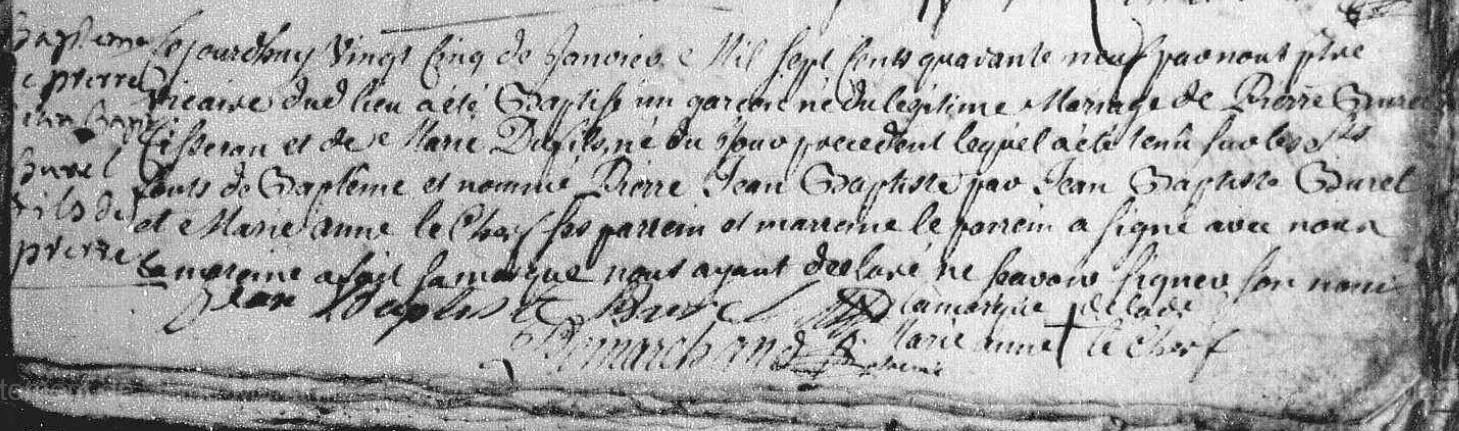 Baptême
Cejourdhuy vingt cinq de Janvier Mil sept cents quarante neuf par nous ptre
de pierre
vicaire dud lieu a été Baptisé un garçon né du légitime Mariage de Pierre Burel
jean Bapt
Tisseran et de Marie Defils, né du jour précédent lequel a été tenû sur les sts
burel
fonts de Baptême et nommé Pierre Jean Baptiste par Jean Baptiste Burel
fils de
et Marie anne le Cherf ses parrein et marreine le parrein a signé avec nous
pierre
la mareine a fait sa marque nous ayant declaré ne scavoir signer son nom
Jean Baptiste Burel la marque de lade
P. marchand Marie anne le Cherf
vicaire